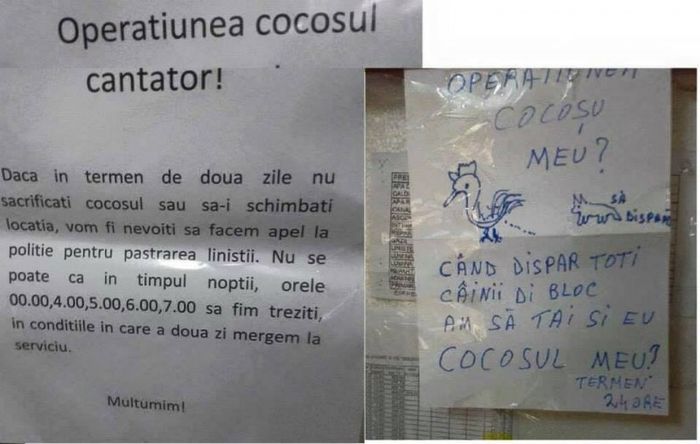 Operatiunea cocosul
cantator!
Daca in termen de doua zile nu
sacrificati cocosul sau sa-i schimbati
locatia, vom fi nevoiti sa facem apel la
politie pentru pastrarea linistii. Nu se
poate ca in timpul noptii, orele
00.00,4.00,5.00,6.00,7.00 sa fim treziti,
in conditiile in care a doua zi mergem la
serviciu.
Multumim!
OPERATIUNEA
COCOȘU
MEU?
SĂ
DISPARĂ
CÂND DISPAR TOTI
CÂINII DI BLOC
AM SĂ TAI SI EU
COCOSUL MEU?
TERMEN
24 ORE